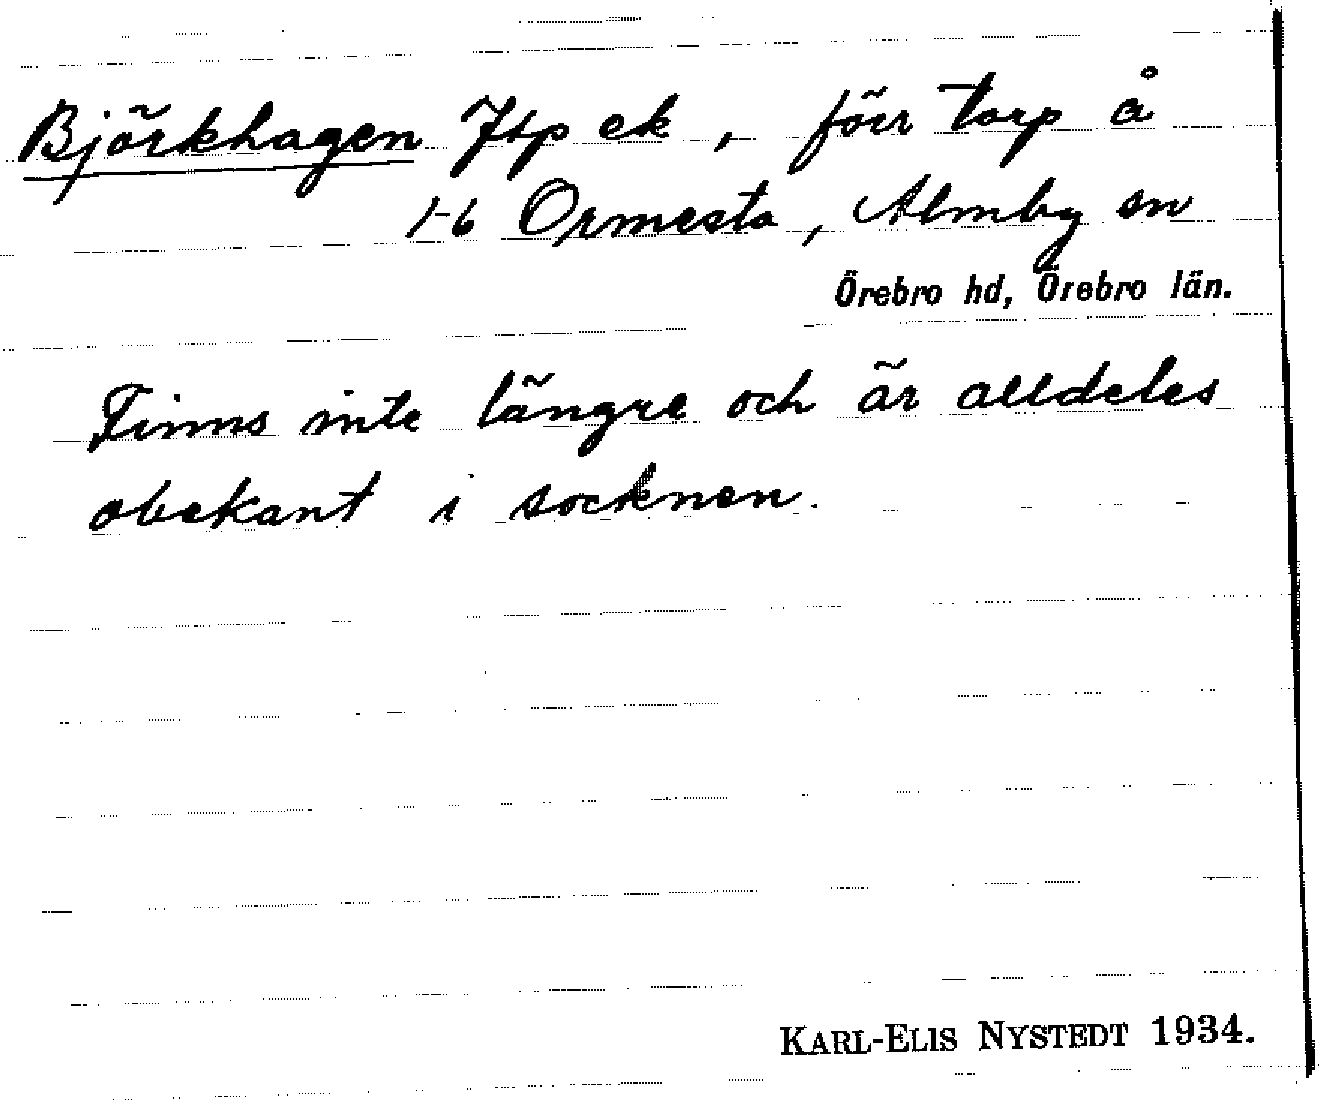 Björkhagen Jtp ek, förr torp å
1-6 Ormesta, Almby sn
Örebro hd, Örebro län.
Finns inte längre och är alldeles
obekant i socknen.
KARL-ELIS NYSTEDT 1934.